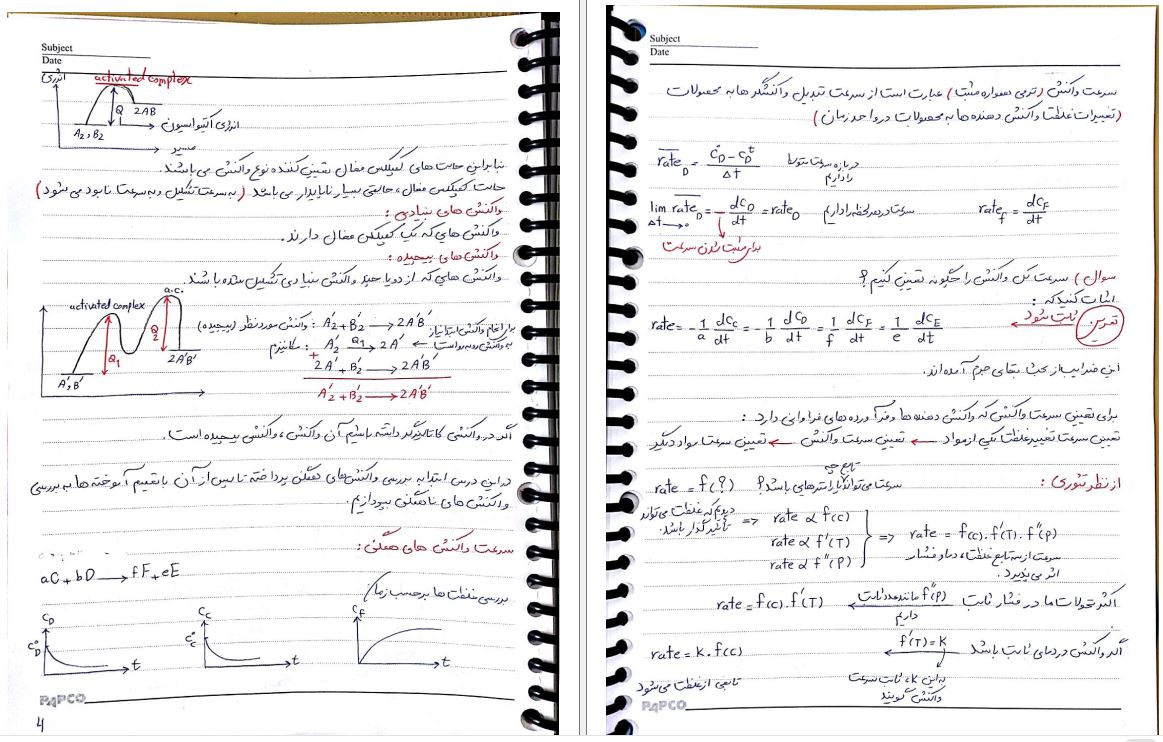 Subject
Date
انرژی
activated complex
Q
2AB
A2,B2
انرژی اکتیواسیون
مسیر
بنابراین حالت های کمپلکس فعال تعیین کننده نوع واکنش می باشند.
حالت کمپلکس فعال، حالتی بسیار ناپایدار می باشد (به سرعت تشکیل و به سرعت نابود می شود)
واکنش های بنیادی:
واکنش هایی که تک کمپلکس فعال دارند.
واکنش های پیچیده:
واکنش هایی که از دو یا چند واکنش بنیادی تشکیل شده باشند.
activated complex
a.c.
Q1
Q2
A'2B'
2A'B'
واکنش مورد نظر (پیچیده): A'2 + B'2 → 2A'B'
مکانیزم: A'2 Q1→ 2A'
برای انجام واکنش ابتدا نیاز به واکنش روبه رو است
+
2A' + B'2 → 2A'B'
A'2 + B'2 → 2A'B'
اگر در واکنشی کاتالیزگر داشته باشیم آن واکنش، واکنشی پیچیده است.
در این درس ابتدا به بررسی واکنش های همگن پرداخته تا پس از آن با تعمیم آموخته ها به بررسی
واکنش های ناهمگن بپردازیم.
سرعت واکنش های همگن:
aC + bD → fF + eE
بررسی غلظت ها برحسب زمان /
CD
C°D
t
CC
C°C
t
CF
t
PAPCO
4
Subject
Date
سرعت واکنش (ترمی همواره مثبت) عبارت است از سرعت تبدیل واکنشگر ها به محصولات
(تغییرات غلظت واکنش دهنده ها به محصولات در واحد زمان)
rateD = (C°D − CDt) / Δt
در بازه سرعت متوسط را داریم
lim Δt→0 rateD = − dCD/dt = rateD
سرعت در هر لحظه را داریم
ratef = dCF/dt
برای مثبت شدن سرعت
سوال) سرعت کل واکنش را چگونه تعیین کنیم؟
اثبات کنید که:
rate = −1/a dCC/dt = −1/b dCD/dt = 1/f dCF/dt = 1/e dCE/dt
تمرین
اثبات شود
این ضرایب از بحث بقای جرم آمده اند.
برای تعیین سرعت واکنش که واکنش دهنده ها و فرآورده های فراوانی دارد:
تعیین سرعت تغییر غلظت یکی از مواد ← تعیین سرعت واکنش ← تعیین سرعت مواد دیگر
از نظر تئوری:
rate = f(?)
سرعت می تواند تابع چه پارامترهایی باشد؟
دیدیم که غلظت می تواند تأثیرگذار باشد.
=> rate ∝ f(c)
rate ∝ f'(T)
rate ∝ f"(P)
=> rate = f(c).f'(T).f"(P)
سرعت از سه تابع غلظت، دما و فشار اثر می پذیرد.
اکثر تحولات ما در فشار ثابت
f"(P) مانند عدد ثابت داریم
rate = f(c).f'(T)
اگر واکنش در دمای ثابت باشد
f'(T) = K
rate = K.f(c)
به این K، ثابت سرعت واکنش گویند
تابعی از غلظت می شود
PAPCO